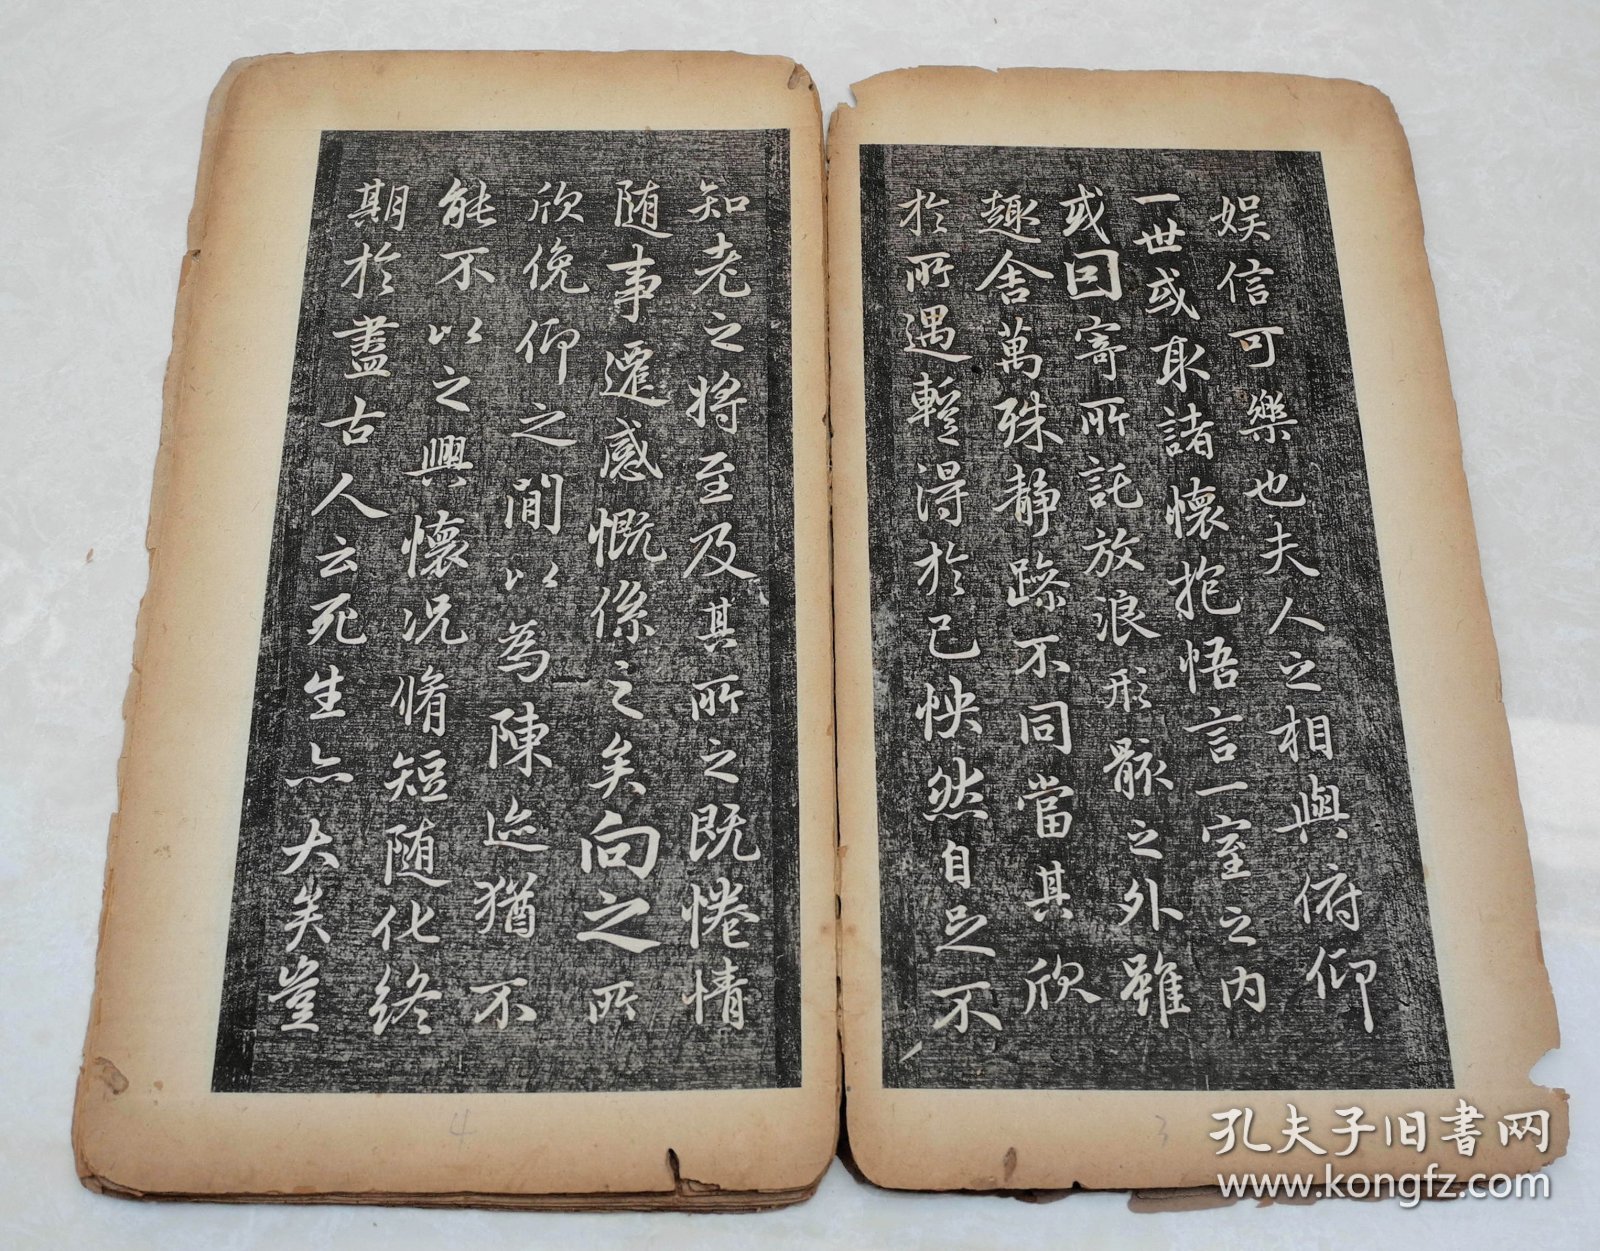 娱信可樂也夫人之相與俯仰
一世或取諸懷抱悟言一室之内
或因寄所託放浪形骸之外雖
趣舍萬殊静躁不同當其欣
於所遇暫得於己怏然自足不
知老之將至及其所之既惓情
随事遷感慨係之矣向之所
欣俛仰之閒以為陳迹猶不
能不以之興懷况脩短随化終
期於盡古人云死生亦大矣豈
4
3
孔夫子旧書网
www.kongfz.com